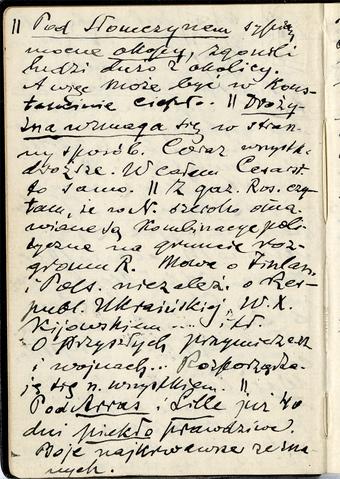 || Pod Słomczynem sypią
mocne okopy, zgonili
ludzi dużo z okolicy.
A więc może być w Kons-
tancinie ciepło. || Droży-
zna wzmaga się w strasz-
ny sposób. Coraz wszystko
droższe. W całem Cesarst.
to samo. || Z gaz. Ros. czy-
tam, że w N. szeroko oma-
wiane są kombinacye poli-
tyczne na gruncie roz-
gromu R. Mowa o Finlan.
i Pols. niezależ. o Res-
publ. Ukraińskiej, W. X.
Kijowskiem ... itd.
O przyszłych przymierzach
i wojnach... Rozporządza-
ją się n. wszystkiem. ||
Pod Arras i Lille już 40
dni piekło prawdziwe.
Boje najkrwawsze ze zna-
nych.